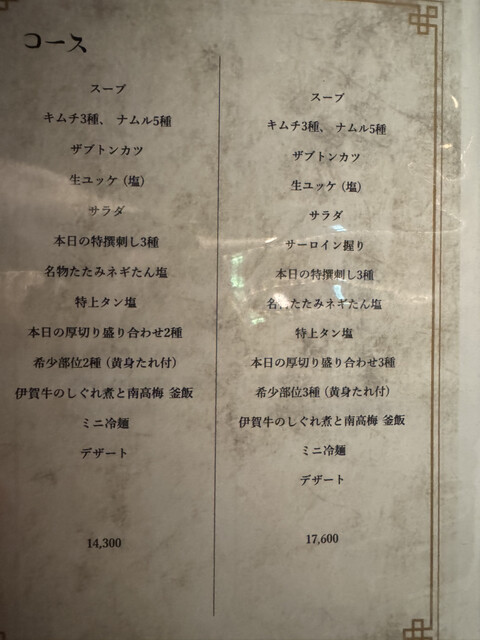 コース
スープ
キムチ3種、ナムル5種
ザブトンカツ
生ユッケ (塩)
サラダ
本日の特撰刺し3種
名物たたみネギたん塩
特上タン塩
本日の厚切り盛り合わせ2種
希少部位2種 (黄身たれ付)
伊賀牛のしぐれ煮と南高梅 釜飯
ミニ冷麺
デザート
14,300
スープ
キムチ3種、ナムル5種
ザブトンカツ
生ユッケ (塩)
サラダ
サーロイン握り
本日の特撰刺し3種
名物たたみネギたん塩
特上タン塩
本日の厚切り盛り合わせ3種
希少部位3種 (黄身たれ付)
伊賀牛のしぐれ煮と南高梅 釜飯
ミニ冷麺
デザート
17,600